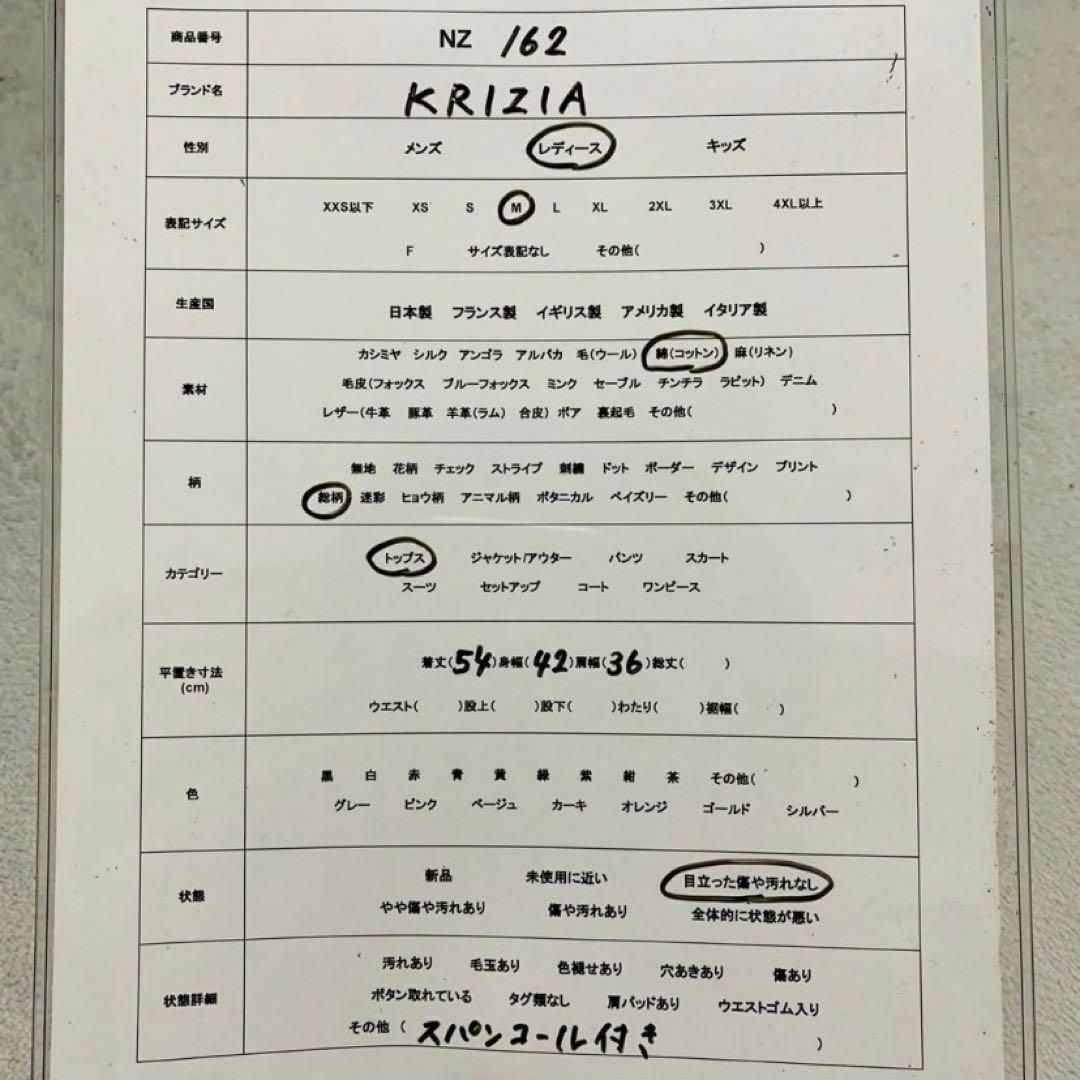 商品番号 NZ 162
ブランド名 KRIZIA
性別 メンズ レディース キッズ
表記サイズ
XXS以下 XS S M L XL 2XL 3XL 4XL以上
F サイズ表記なし その他( )
生産国 日本製 フランス製 イギリス製 アメリカ製 イタリア製
素材
カシミヤ シルク アンゴラ アルパカ 毛(ウール) 綿(コットン) 麻(リネン)
毛皮(フォックス ブルーフォックス ミンク セーブル チンチラ ラビット) デニム
レザー(牛革 豚革 羊革(ラム) 合皮) ボア 裏起毛 その他( )
柄
無地 花柄 チェック ストライプ 刺繍 ドット ボーダー デザイン プリント
総柄 迷彩 ヒョウ柄 アニマル柄 ボタニカル ペイズリー その他( )
カテゴリー
トップス ジャケット/アウター パンツ スカート
スーツ セットアップ コート ワンピース
平置き寸法
(cm)
着丈(54)身幅(42)肩幅(36)総丈( )
ウエスト( )股上( )股下( )わたり( )裾幅( )
色
黒 白 赤 青 黄 緑 紫 紺 茶 その他( )
グレー ピンク ベージュ カーキ オレンジ ゴールド シルバー
状態
新品 未使用に近い 目立った傷や汚れなし
やや傷や汚れあり 傷や汚れあり 全体的に状態が悪い
状態詳細
汚れあり 毛玉あり 色褪せあり 穴あきあり 傷あり
ボタン取れている タグ類なし 肩パッドあり ウエストゴム入り
その他 ( スパンコール付き )